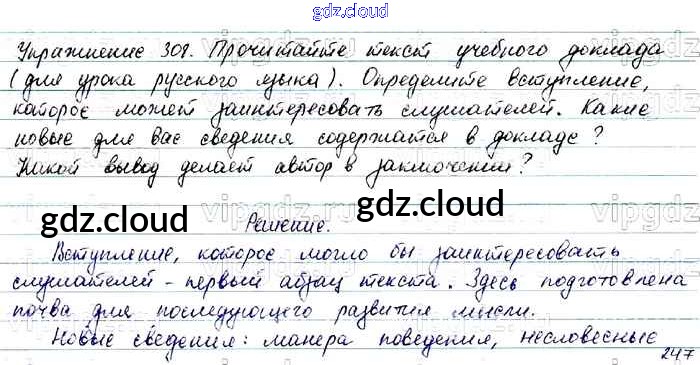 gdz.cloud
Упражнение 308. Прочитайте текст учебного доклада
(для урока русского языка). Определите вступление,
которое может заинтересовать слушателей. Какие
новые для вас сведения содержатся в докладе?
Какой вывод делает автор в заключении?
gdz.cloud gdz.cloud
Решение.
Вступление, которое могло бы заинтересовать
слушателей - первый абзац текста. Здесь подготовлена
почва для последующего развития мысли.
Новые сведения: манера поведения, несловесные
247